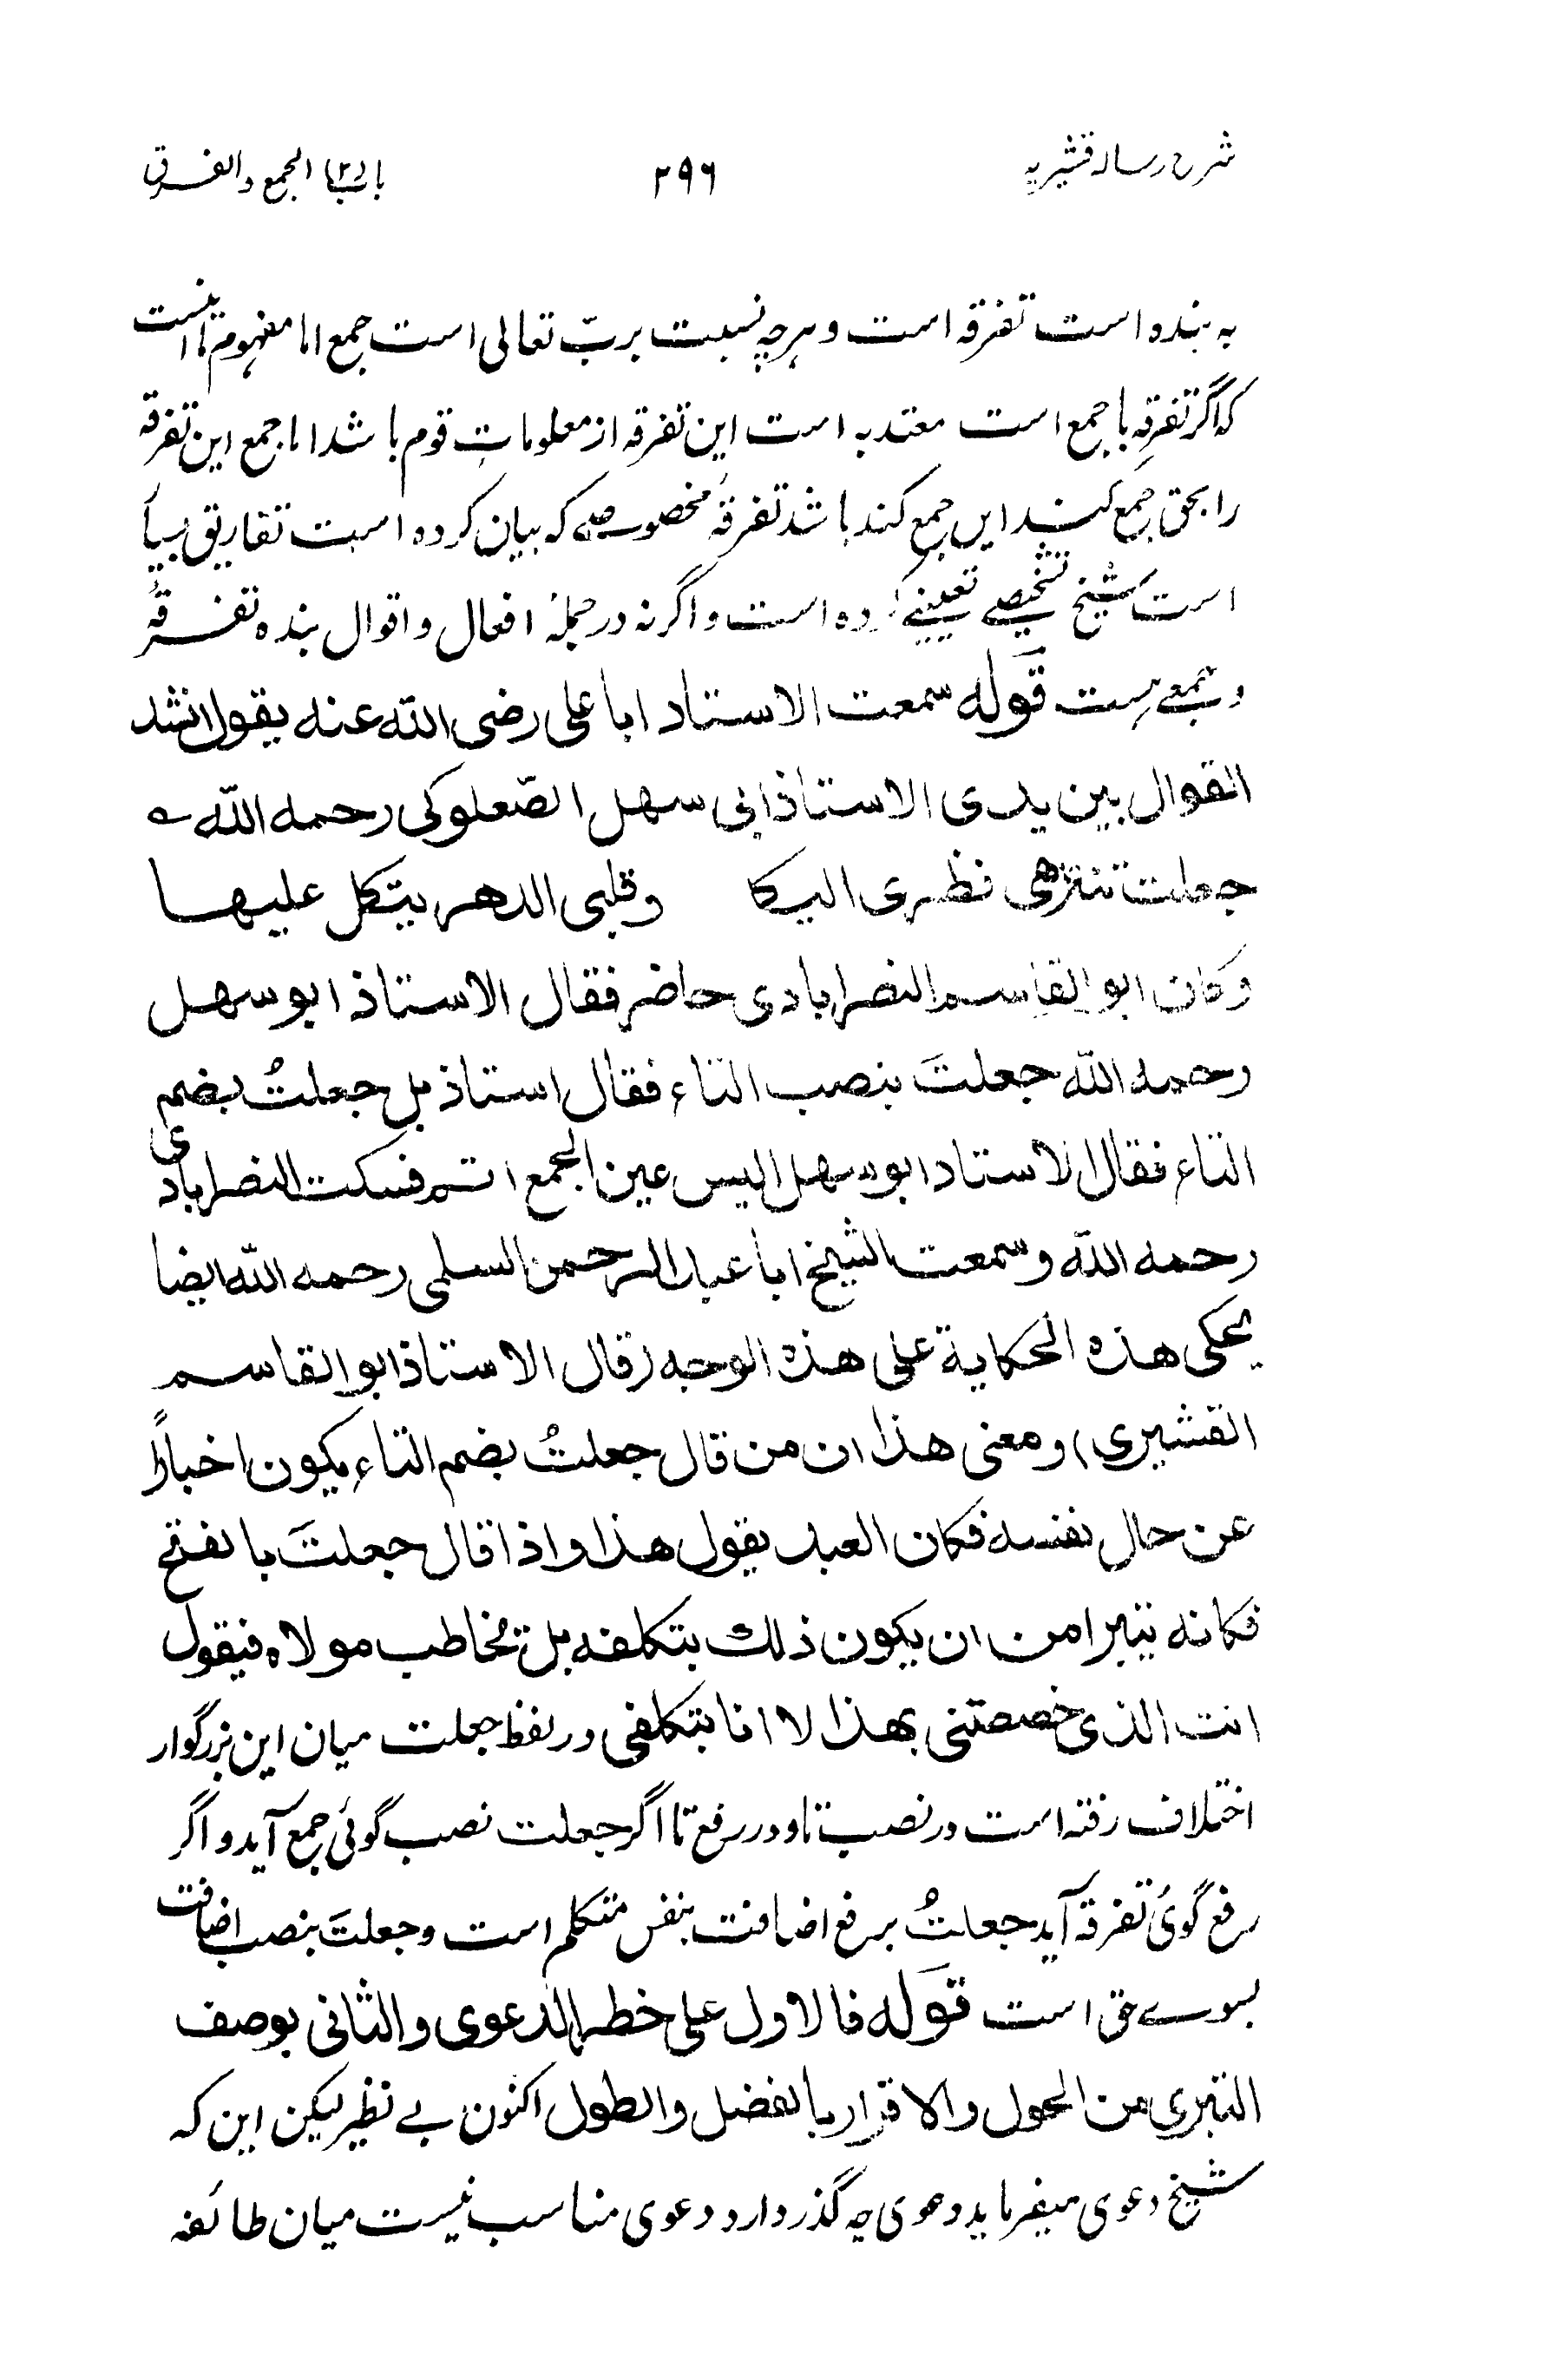 شرح رسالہ قشیریہ
۲۹۶
باب (۲) الجمع والفرق
بہ بندہ است تفرقہ است و ہرچہ نسبت بربّ تعالی است جمع اما مفہوم تا اینست
کہ اگر تفرقہ با جمع است معتد بہ است این تفرقہ از معلومات قوم باشد اما جمع این تفرقہ
را بحق جمع کنند ایں جمع کند باشد تفرقۂ مخصوصے کہ بیان کردہ است تفاریق بسیار
است شیخ تشخیصے تعیینے کردہ است و اگر نہ در جملۂ افعال و اقوال بندہ تفرقۂ
و جمعے ہست قولہ سمعت الاستاد ابا علی رضی اللہ عنہ یقول انشد
القوال بین یدی الاستاذ ابی سهل الصّعلوکی رحمه اللّٰه ؎
جعلت تنزهی نظری الیکا وقلبی الدهر یتکل علیها
وکان ابو القاسم النصرابادی حاضر فقال الاستاذ ابو سهل
رحمه اللّٰه جعلتَ بنصب التاء فقال استاذ بل جعلتُ بضم
التاء فقال الاستاد ابو سهل الیس عین الجمع اتم فسکت النصرابادی
رحمه اللّٰه وسمعت الشیخ ابا عبد الرحمن السلمی رحمه اللّٰه ایضا
یحکی هذه الحکایة علی هذه الوجه (قال الاستاذ ابو القاسم
القشیری) ومعنی هذا ان من قال جعلتُ بضم التاء یکون اخباراً
عن حال نفسه فکان العبد یقول هذا واذا قال جعلتَ بالفتح
فکانه یتبرا من ان یکون ذلك بتکلفه بل یخاطب مولاه فیقول
انت الذی خصصتنی بهذا لا انا بتکلفی در لفظ جعلت میان این بزرگوار
اختلاف رفتہ است در نصب تا و در رفع تا اگر جعلت نصب گوئی جمع آید و اگر
رفع گوئ تفرقہ آید جعلتُ برفع اضافت بنفس متکلم است و جعلتَ بنصب اضافت
بسوے حق است قولہ فالاول علی خطر الدعوی والثانی بوصف
التبری من الحول والاقرار بالفضل والطول اکنون بے نظیر لیکن این کہ
شیخ دعوی میفرماید دعوی چہ گذر دارد دعوی مناسب نیست میان طائفہ